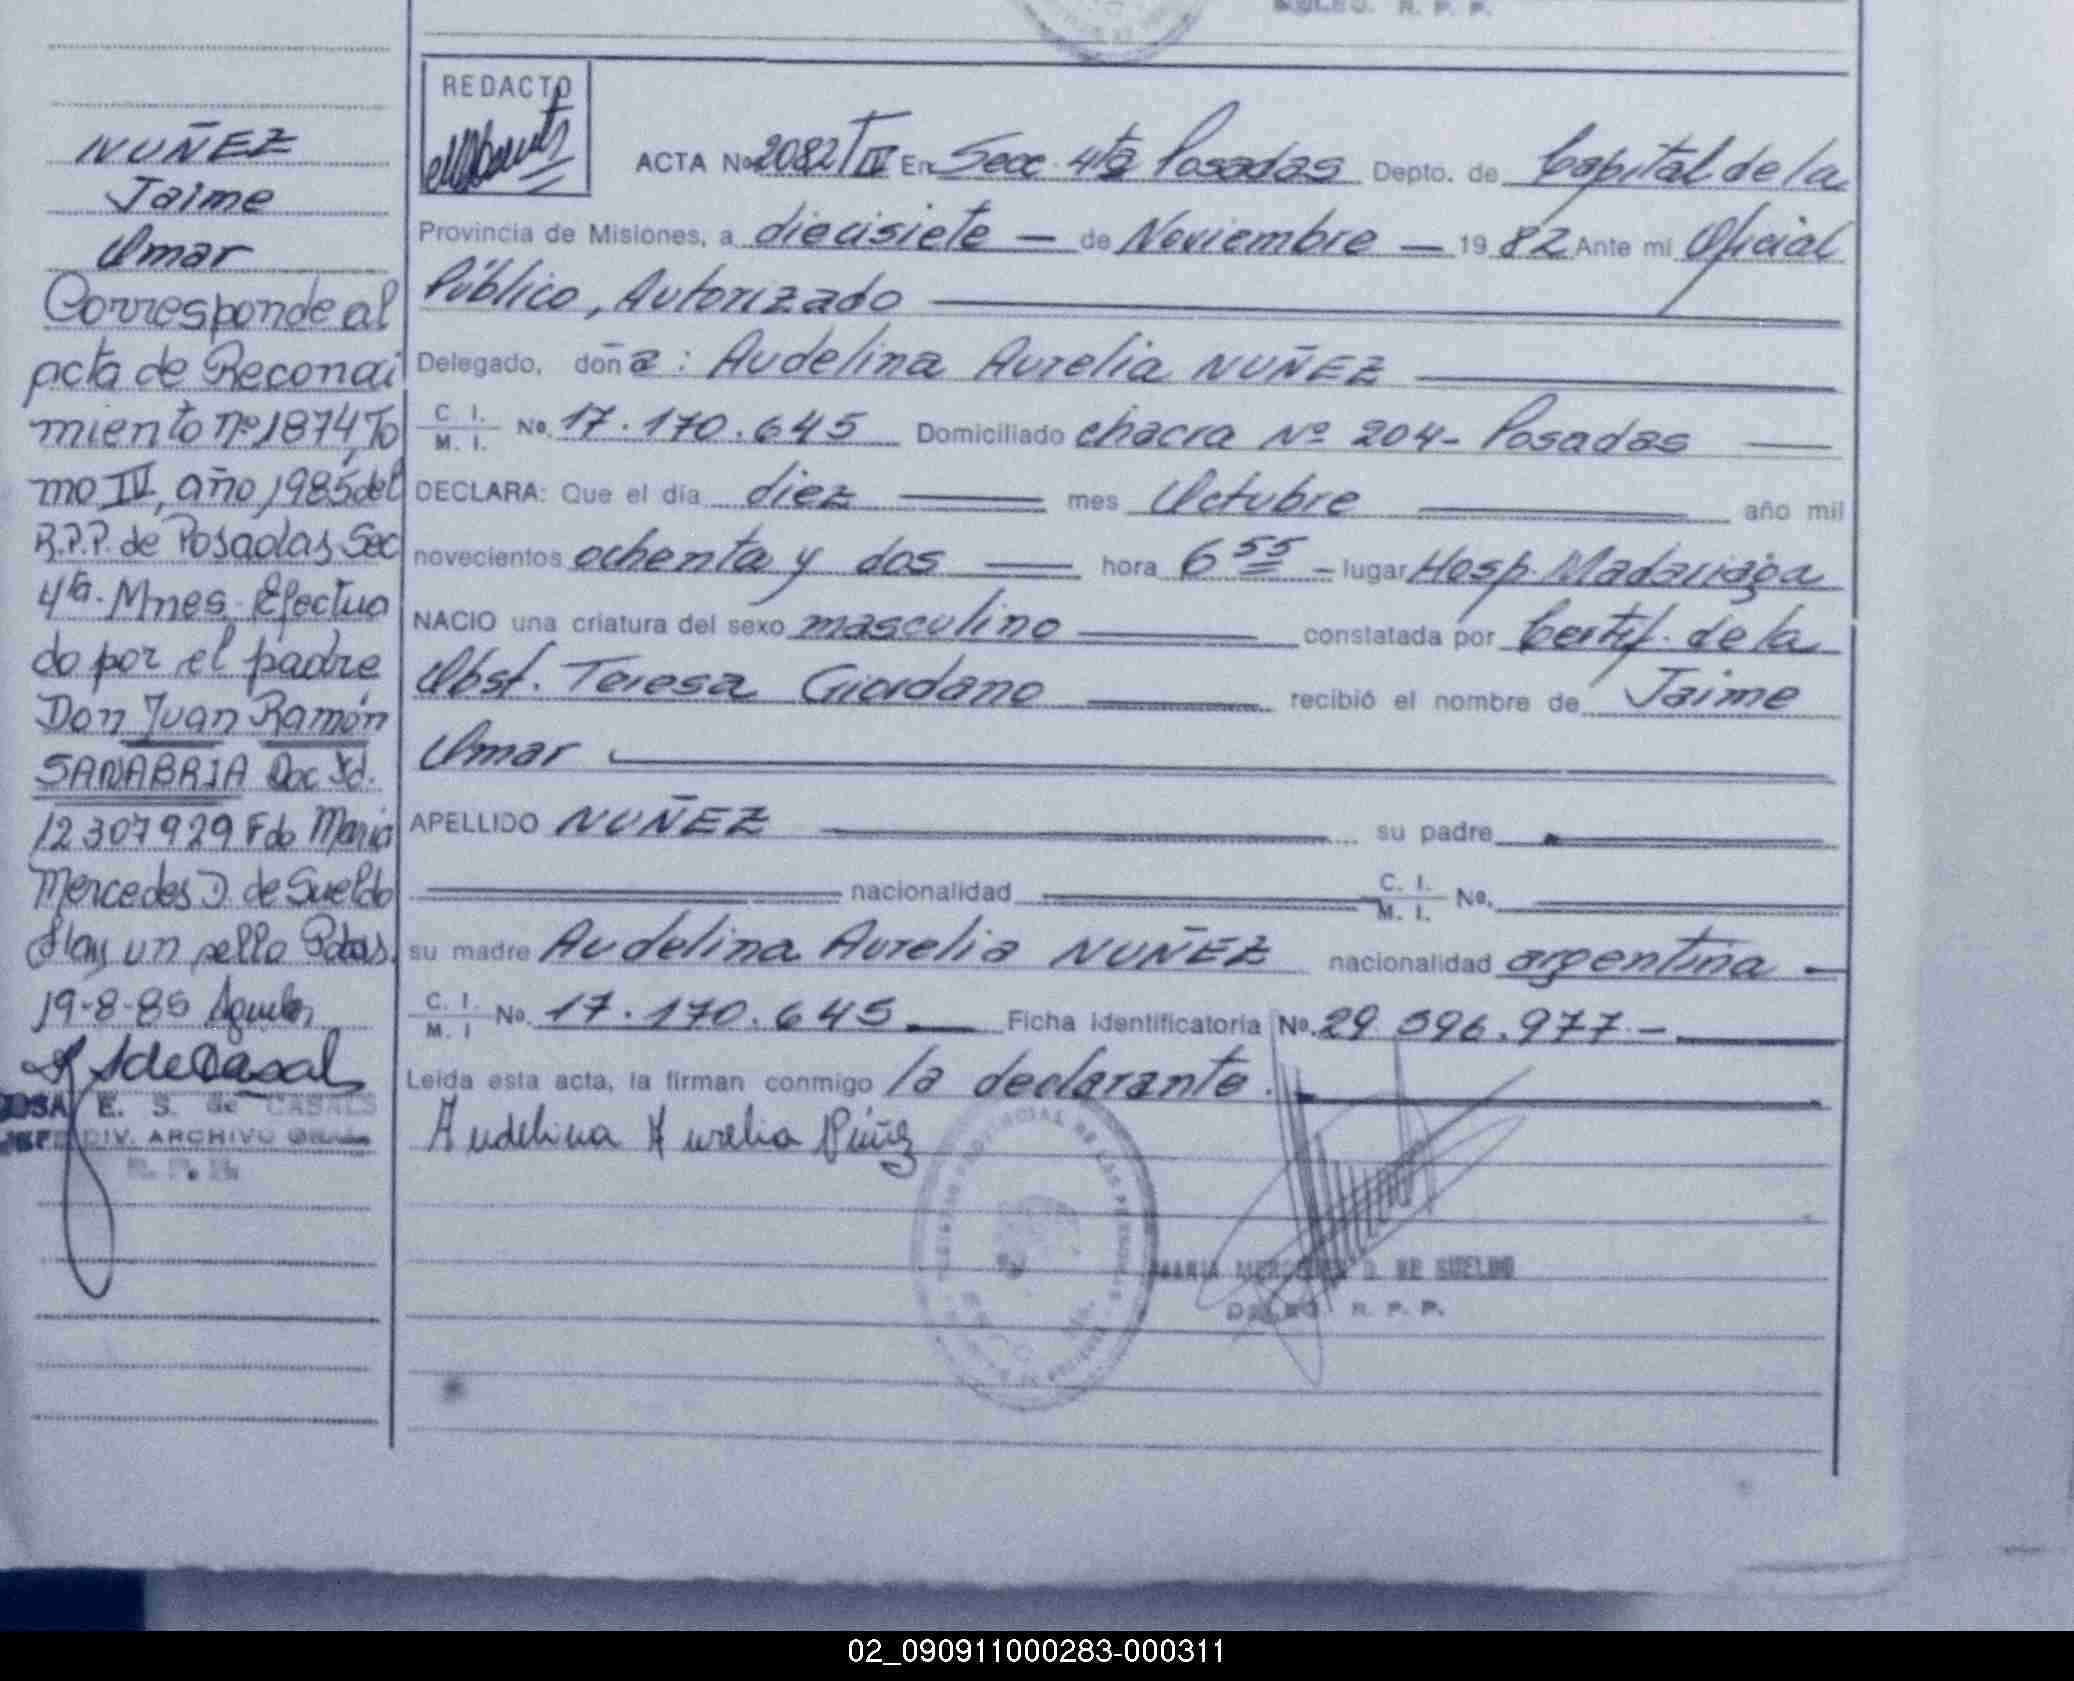 DALEO. R. P. P.
NUÑEZ
Jaime
Omar
Corresponde al
acta de Reconoci
miento nº 1874, To
mo IV, año 1985 del
R.P.P. de Posadas Sec
4ta. Mnes. Efectua
do por el padre
Don Juan Ramón
SANABRIA Doc Id.
12307929 Fdo Maria
Mercedes D. de Sueldo
Hay un sello Pdas.
19-8-85
E. S. de CASALS
DIV. ARCHIVO GRAL.
R. P. P.
REDACTO
ACTA Nº 2082/T IV En Secc. 4ta Posadas Depto. de Capital de la
Provincia de Misiones, a diecisiete — de Noviembre — 19 82 Ante mi Oficial
Público, Autorizado
Delegado, doña: Audelina Aurelia NUÑEZ
C. I. / M. I. No. 17.170.645 Domiciliado chacra Nº 204- Posadas
DECLARA: Que el día diez mes Octubre año mil
novecientos ochenta y dos hora 6 55 lugar Hosp. Madariaga
NACIO una criatura del sexo masculino constatada por Certif. de la
Obst. Teresa Giordano recibió el nombre de Jaime
Omar
APELLIDO NUÑEZ su padre
nacionalidad C. I. / M. I. No.
su madre Audelina Aurelia NUÑEZ nacionalidad argentina —
C. I. / M. I No. 17.170.645 Ficha identificatoria No. 29.396.977.-
Leida esta acta, la firman conmigo la declarante.
Audelina Aurelia Núñez
REGISTRO PROVINCIAL DE LAS PERSONAS
MARIA MERCEDES D. DE SUELDO
R. P. P.
02_090911000283-000311